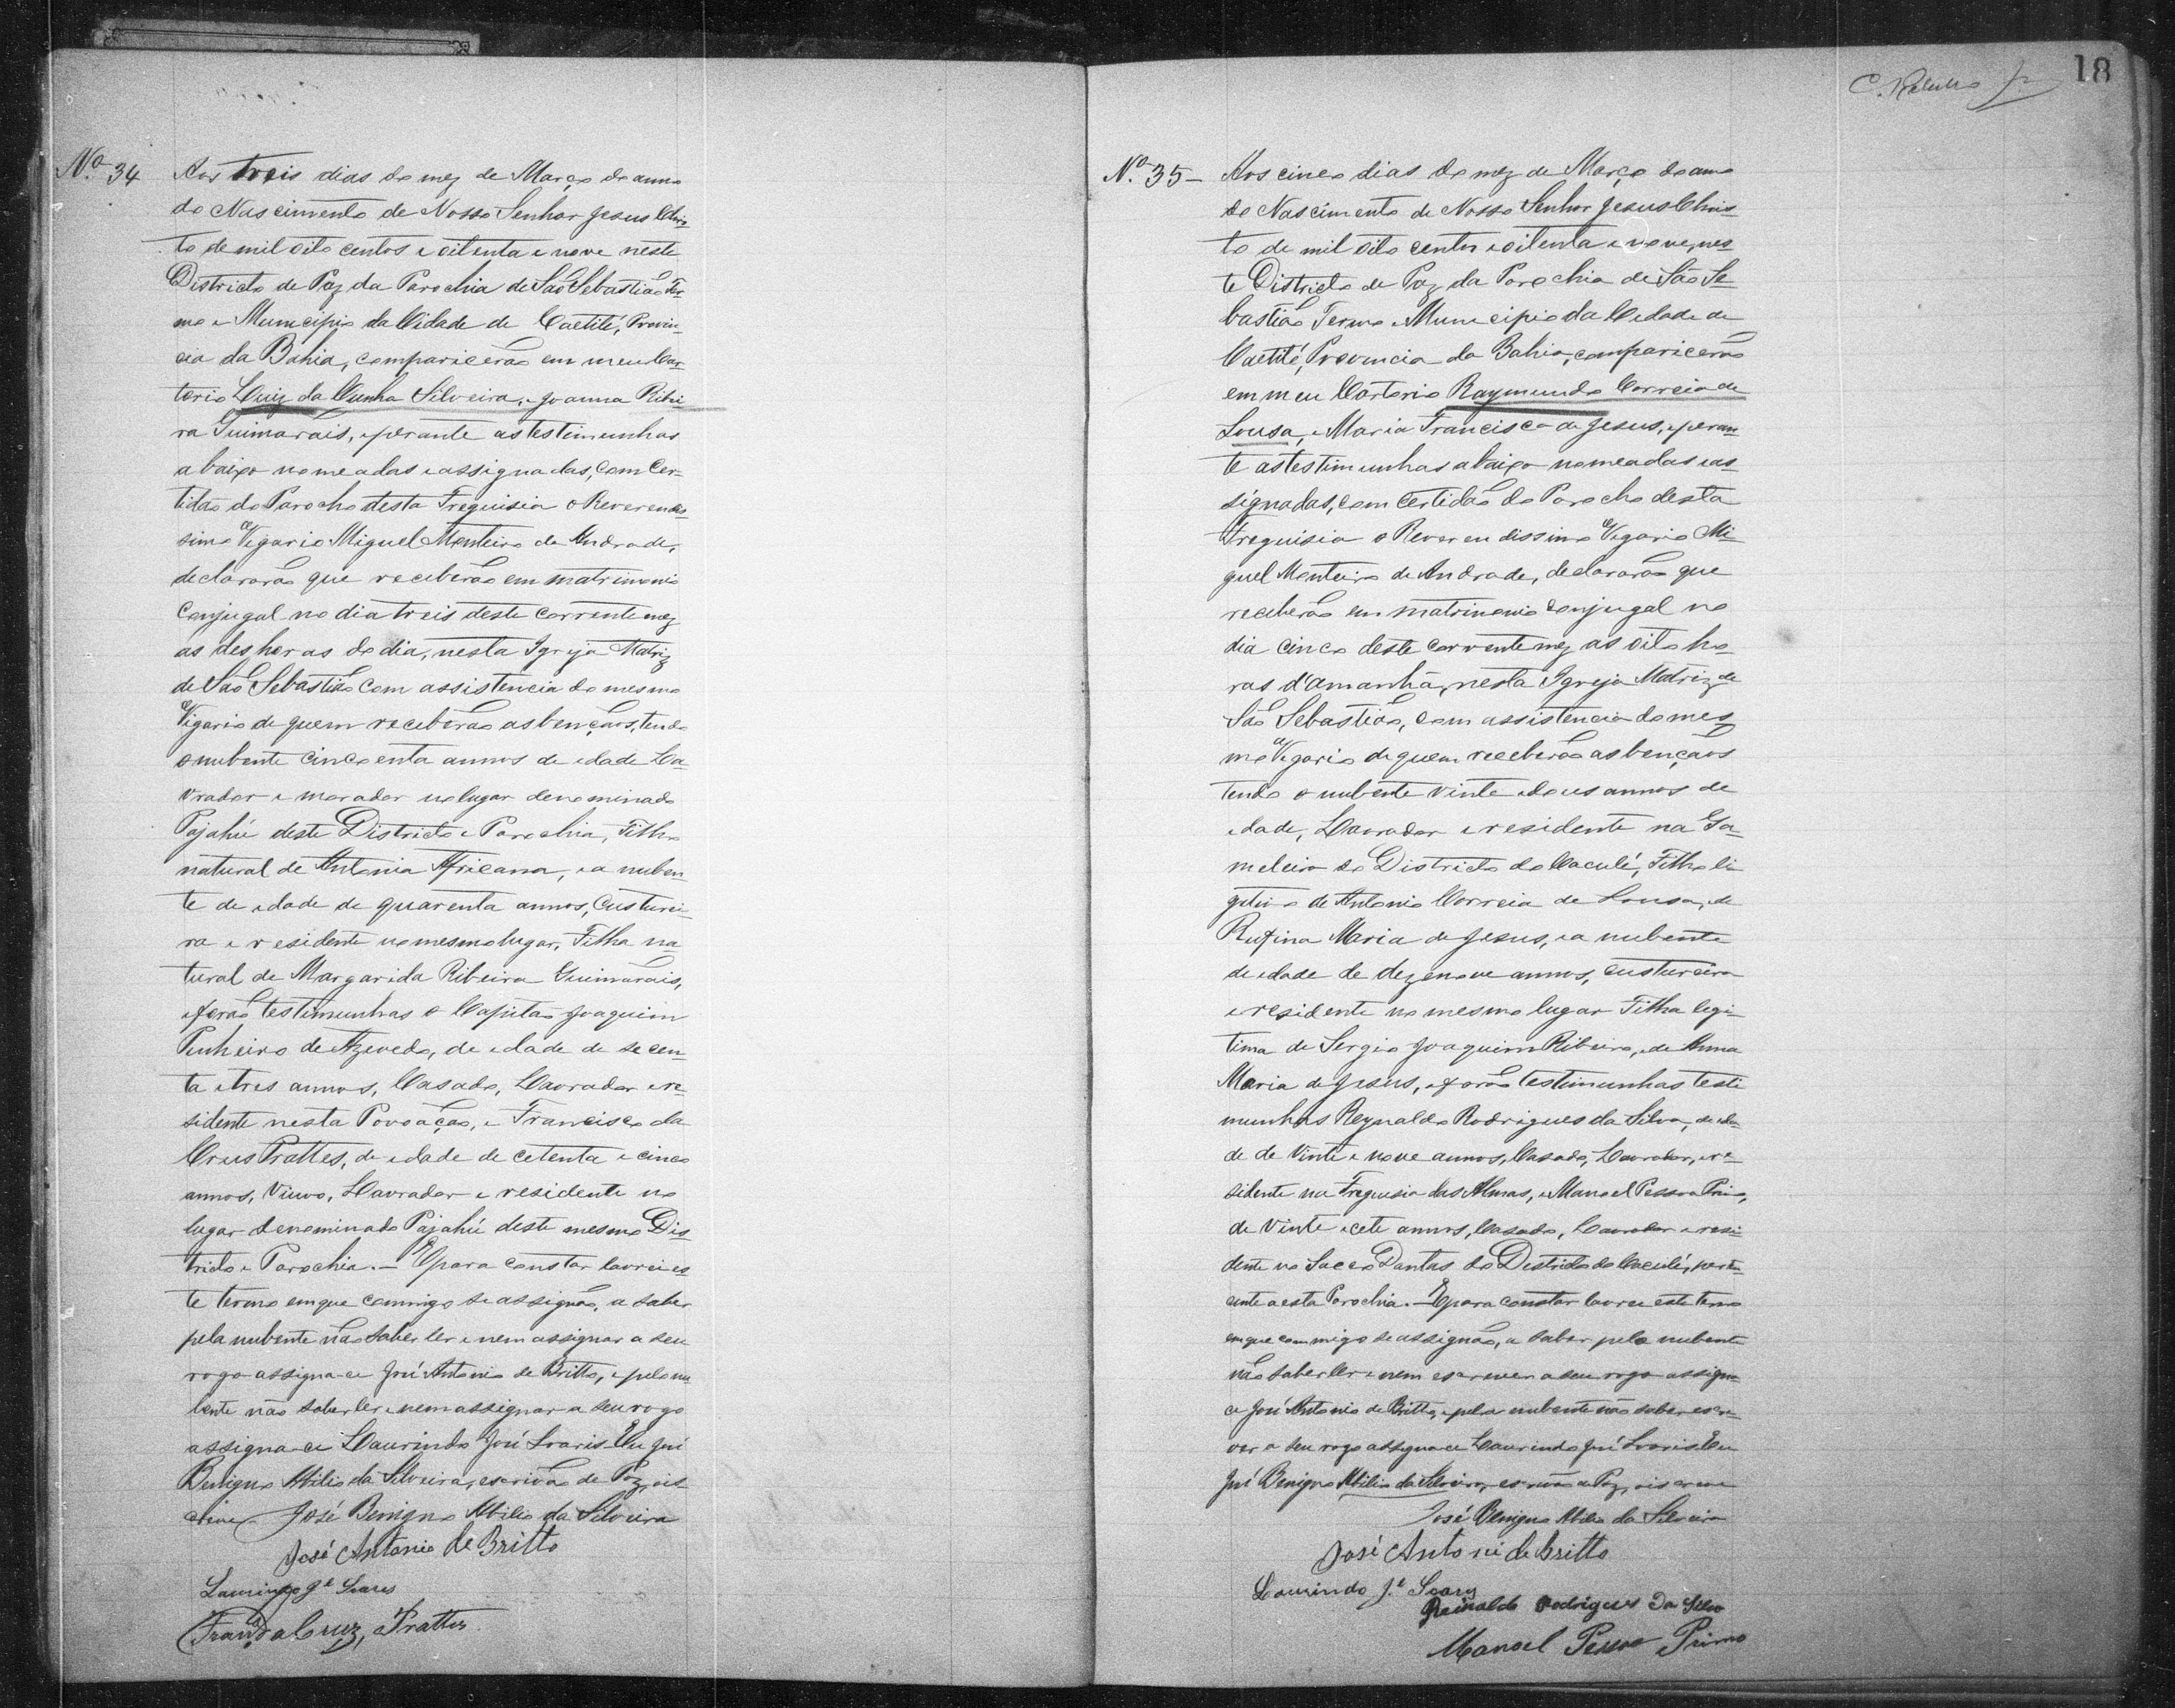 Nº 34
Aos treis dias do mez de Março do anno
do Nascimento de Nosso Senhor Jesus Chris
to de mil oito centos e oitenta e nove neste
Districto de Paz da Parochia de São Sebastião Ter
mo e Municipio da Cidade de Caetité, Provin
cia da Bahia, comparicerão em meu Car
torio Luiz da Cunha Silveira, e Joanna Ribei
ra Guimarais, e perante as testimunhas
abaixo nomeadas e assignadas, com Cer-
tidão do Parocho desta Freguisia o Reverendis
simo Vigario Miguel Monteiro de Andrade,
declararão que receberão em matrimonio
Conjugal no dia treis deste corrente mez
as des horas do dia, nesta Igreja Matriz
de São Sebastião com assistencia do mesmo
Vigario de quem receberão as bençaõs, tendo
o nubente cincoenta annos de edade La-
vrador e morador no lugar denominado
Pajahú deste Districto e Parochia, Filho
natural de Antonia Africana, e a nuben-
te de edade de quarenta annos, Custurei-
ra e residente no mesmo lugar, Filha na
tural de Margarida Ribeira Guimarais,
e forão testimunhas o Capitão Joaquim
Pinheiro de Azevedo, de edade de secen-
ta e tres annos, Casado, Lavrador e re-
sidente nesta Povoação, e Francisco da
Crus Prattes, de edade de cetenta e cinco
annos, Viuvo, Lavrador e residente no
lugar denominado Pajahú deste mesmo Dis
tricto e Parochia. — E para constar lavrei es
te termo em que commigo se assignão, a saber
pela nubente não saber ler e nem assignar a seu
rogo assigna-ce José Antonio de Britto, e pelo nu
bente não saber ler e nem assignar a seu rogo
assigna-ce Laurindo José Soaris Eu José
Benigno Abilio da Silveira, escrivão de Paz, o is
crivi José Benigno Abilio da Silveira
José Antonio de Britto
Laurindo Jé Soares
Franco da Cruz, Prattes
18
Nº 35 —
Aos cinco dias do mez de Março do anno
do Nascimento de Nosso Senhor Jesus Chris
to de mil oito centos e oitenta e nove, nes
te Districto de Paz da Parochia de São Se
bastião Termo e Municipio da Cidade de
Caetité, Provincia da Bahia, comparicerão
em meu Cartorio Raymundo Correia de
Sousa, e Maria Francisca de Jesus, e peran
te as testimunhas abaixo nomeadas e as
signadas, com certidão do Parocho desta
Freguisia o Reverendissimo Vigario Mi
guel Monteiro de Andrade, declararão que
receberão em matrimonio conjugal no
dia cinco deste corrente mez as oito ho
ras d'amanhã, nesta Igreja Matriz de
São Sebastião, com assistencia do mes
mo Vigario de quem receberão as bençaõs
tendo o nubente vinte e dous annos de
edade, Lavrador e residente na Ga-
meleira do Districto do Caculé, Filho li
gitimo de Antonio Correia de Sousa, e de
Rufina Maria de Jesus, e a nubente
de edade de dezenove annos, custureira
e residente no mesmo lugar Filha legi
tima de Sergio Joaquim Ribeiro, e de Anna
Maria de Jesus, e forão testimunhas testi
munhas Reynaldo Rodrigues da Silva, de eda
de de Vinte e nove annos, Casado, Lavrador, e re
sidente na Freguisia das Almas, e Manoel Pessoa Primo,
de Vinte e cete annos, Casado, Lavrador e resi
dente no Sacco Dantas do Districto do Caculé, perten
cente a esta Parochia. — E para constar lavrei este termo
em que commigo se assignão, a saber pela nubente
não saber ler e nem escrever a seu rogo assigna
ce José Antonio de Britto, e pelo nubente não saber escre
ver a seu rogo assigna-ce Laurindo José Soaris Eu
José Benigno Abilio da Silveira, escrivão de Paz, o iscrevi
José Benigno Abilio da Silveira
José Antonio de Britto
Laurindo J.é Soares
Reinaldo Rodrigues Da Silva
Manoel Pessoa Primo